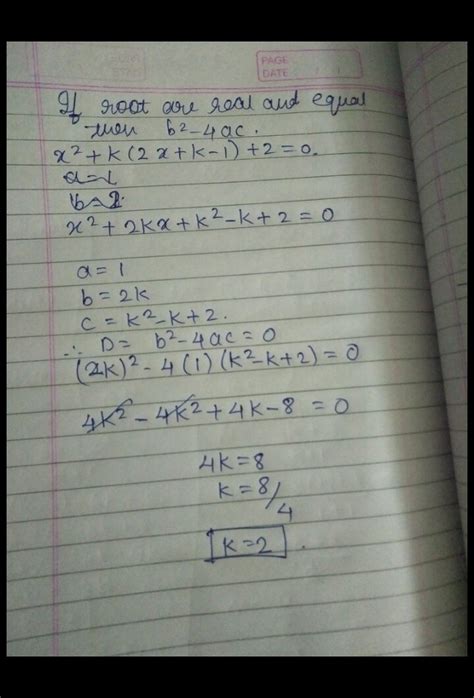 PAGE
DATE
If root are real and equal
then b²-4ac.
x²+k(2x+k-1)+2=0.
a=1
x²+2kx+k²-k+2=0
a=1
b=2k
c=k²-k+2.
∴ D= b²-4ac=0
(2k)²-4(1)(k²-k+2)=0
4k²-4k²+4k-8=0
4k=8
k=8/4
k=2.